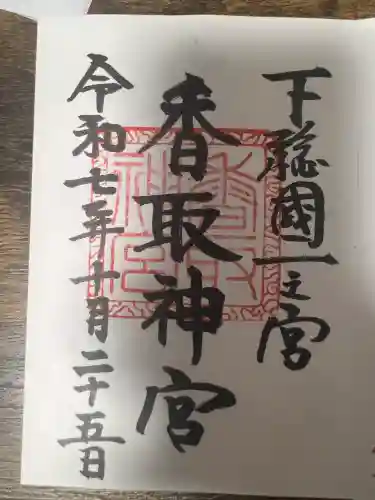 下總國一之宮
香取神宮
令和七年十月二十五日